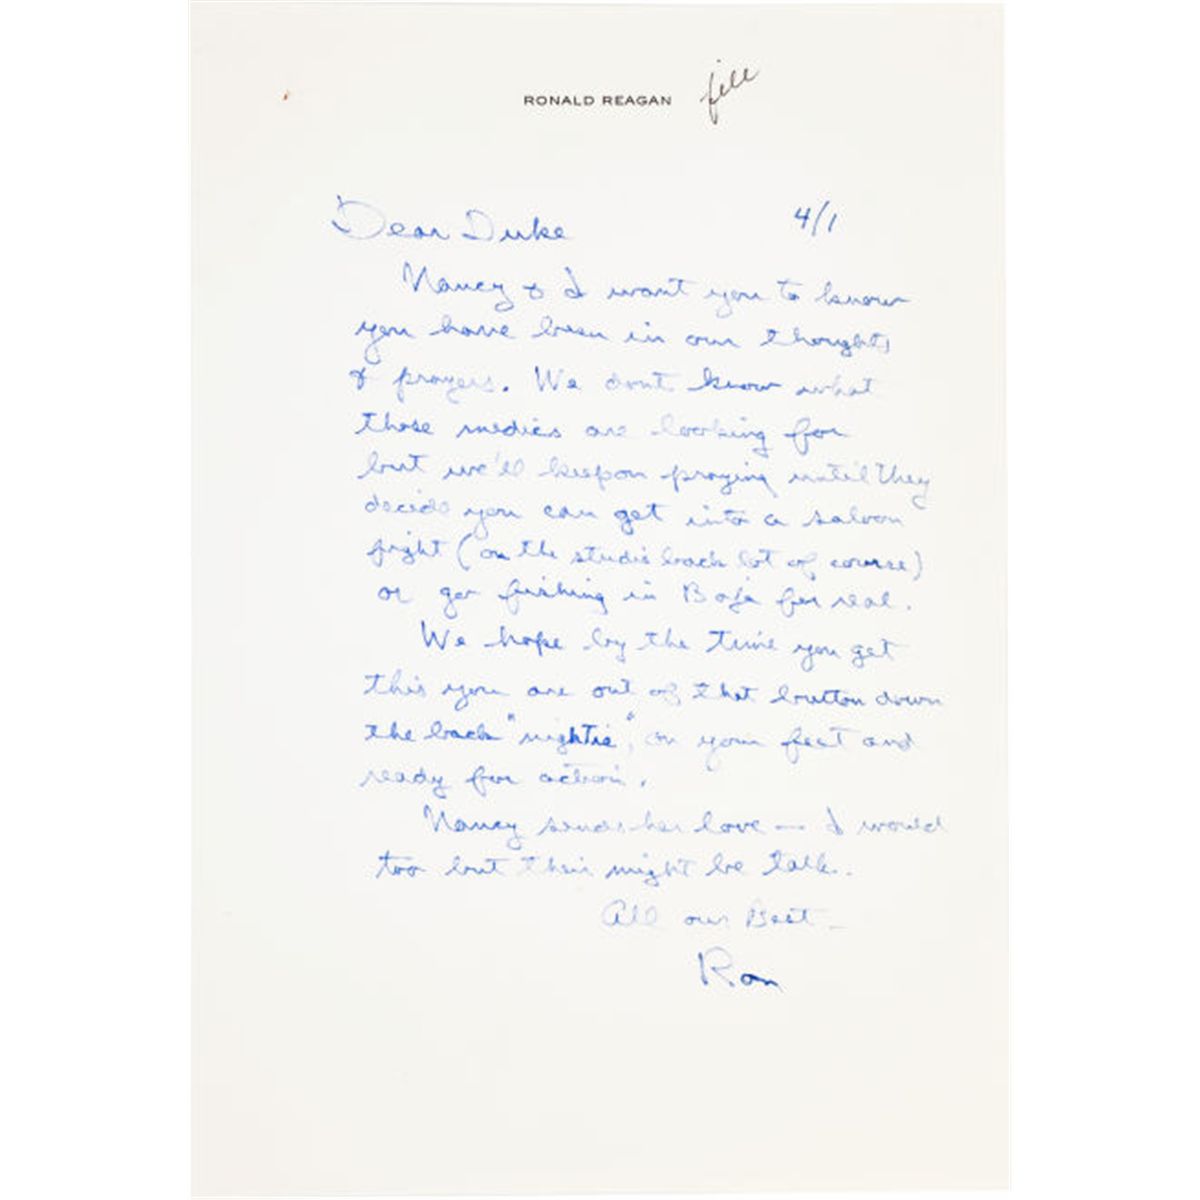 RONALD REAGAN file
Dear Duke 4/1
Nancy & I want you to know
you have been in our thoughts
& prayers. We dont know what
those medics are looking for
but we'll keep on praying until they
decide you can get into a saloon
fight (on the studio back lot of course)
or go fishing in Baja for real.
We hope by the time you get
this you are out of that button down
the back "nightie", on your feet and
ready for action.
Nancy sends her love — I would
too but their might be talk.
All our Best –
Ron